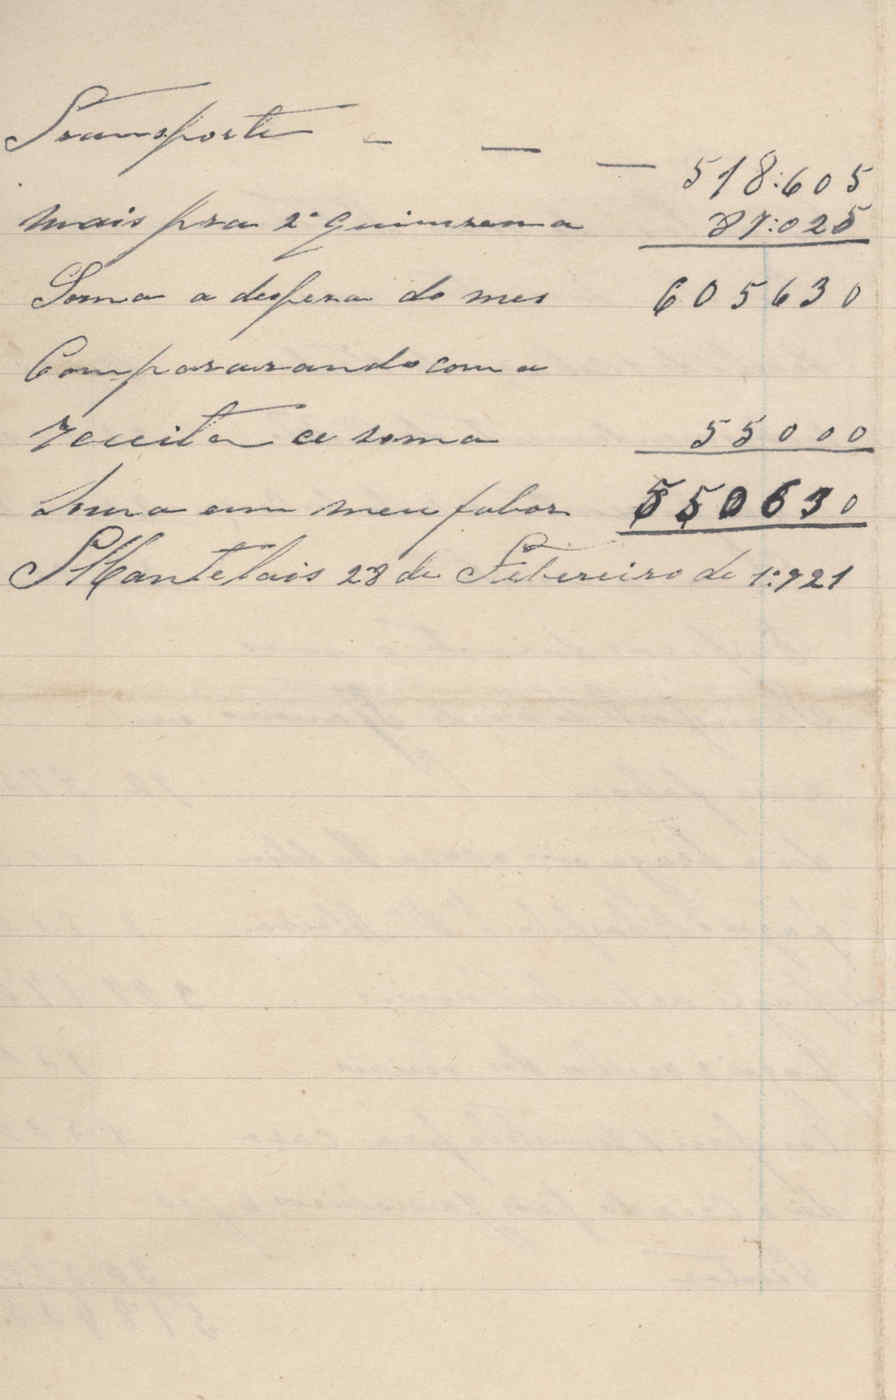 Transporte - - - 518:605
mais pra 2ª quinzena 87:025
Soma a despeza do mes 605630
Compararando com a
receita ce soma 55000
Soma em meu fabor 550630
28 de Febereiro de 1:921